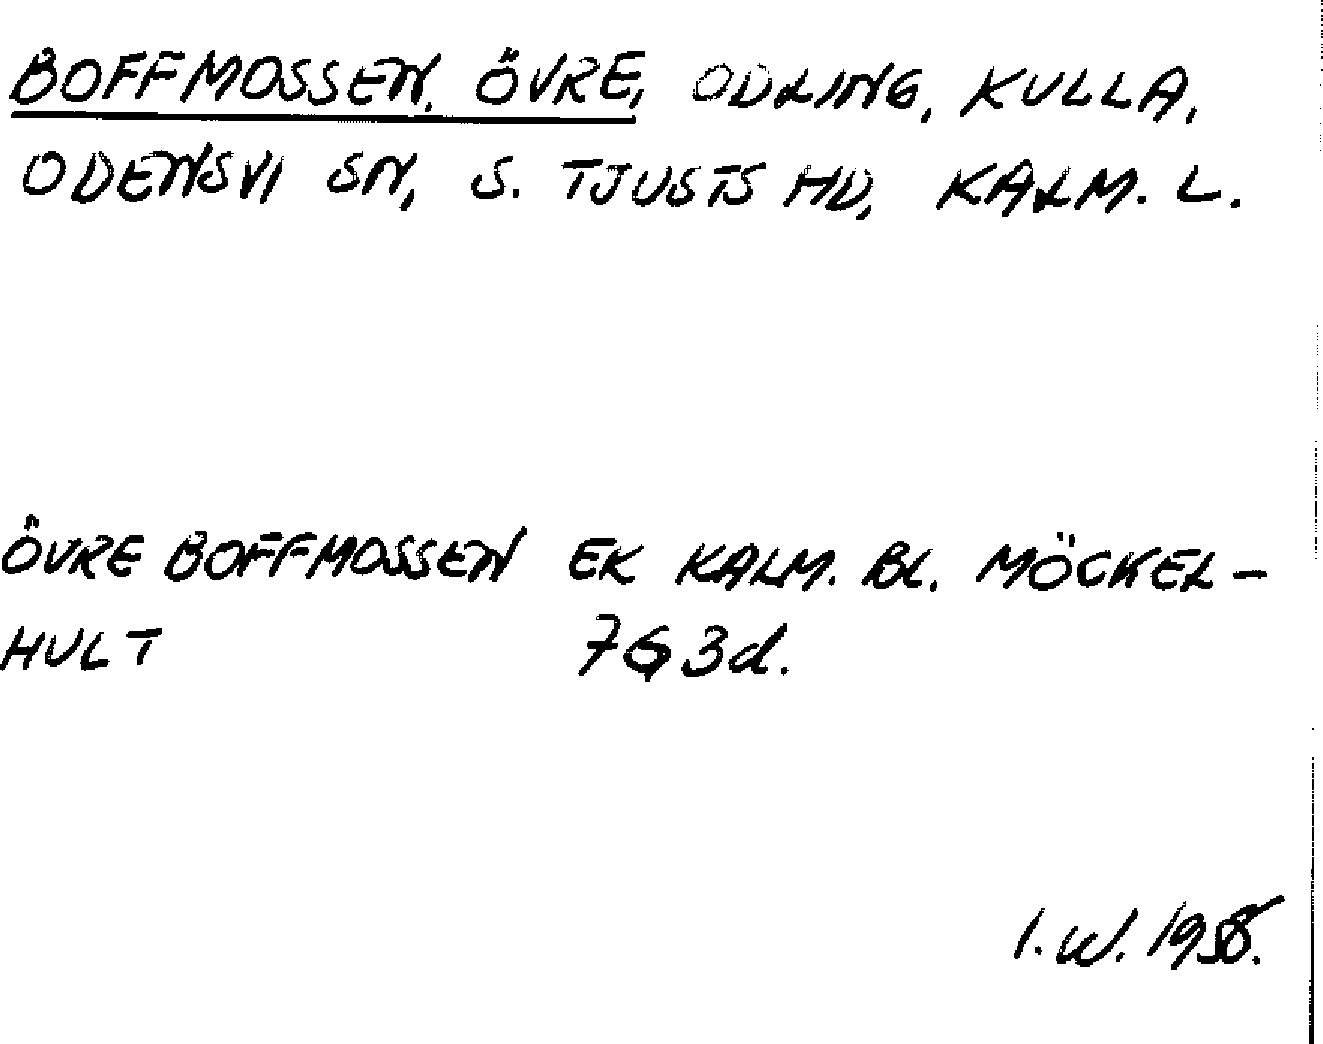 BOFFMOSSEN, ÖVRE, ODLING, KULLA,
ODENSVI SN, S. TJUSTS HD, KALM. L.
ÖVRE BOFFMOSSEN EK KALM. BL. MÖCKEL-
HULT 7G3d.
I.W.